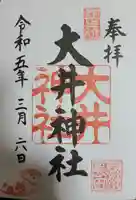 奉拝
大井神社
大井
神社
令和五年三月六日